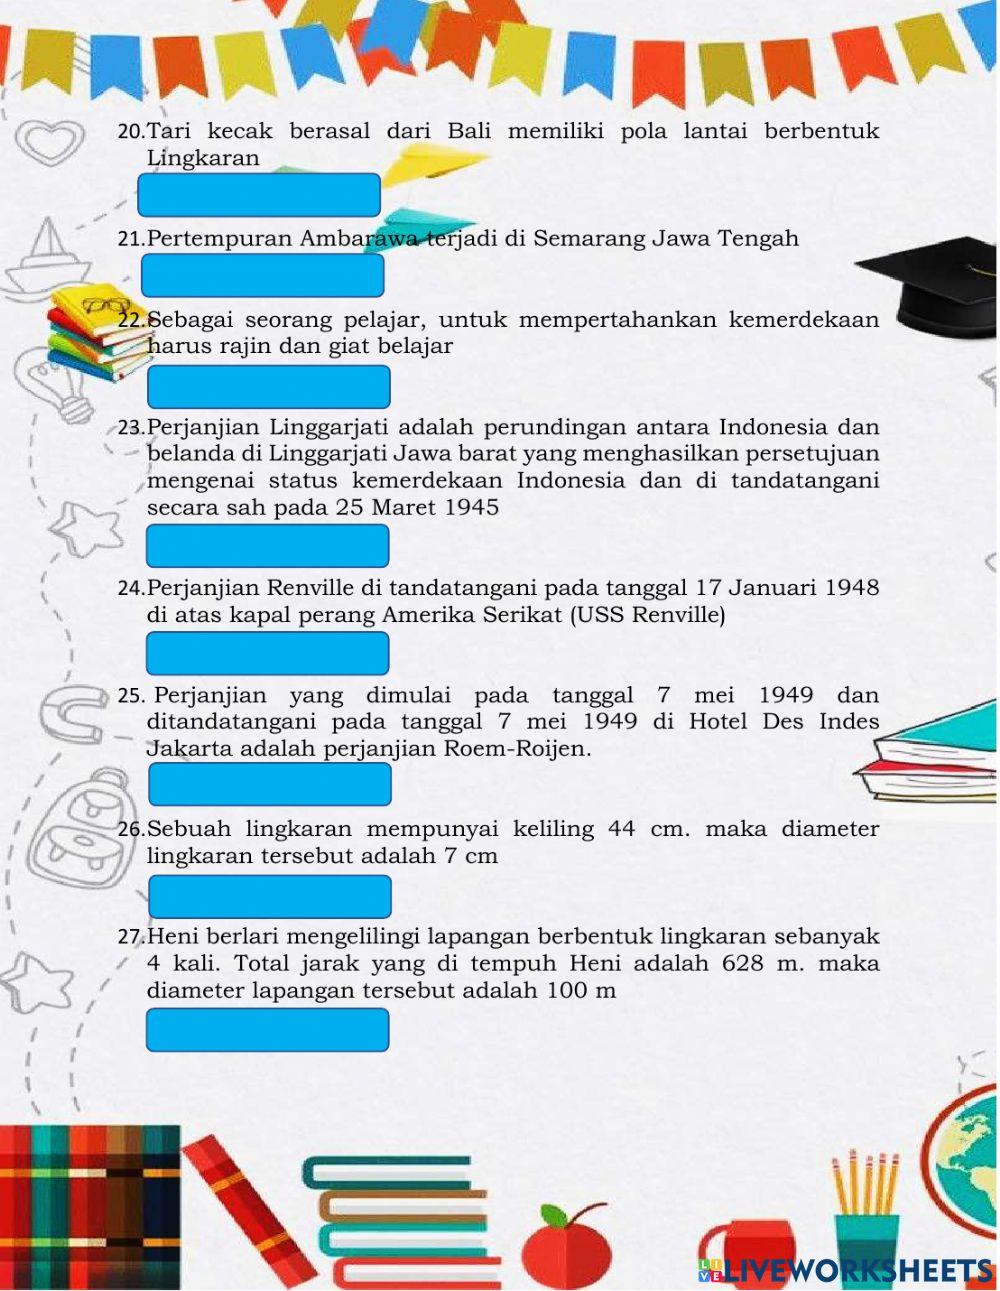 20.Tari kecak berasal dari Bali memiliki pola lantai berbentuk
Lingkaran
21.Pertempuran Ambarawa terjadi di Semarang Jawa Tengah
22.Sebagai seorang pelajar, untuk mempertahankan kemerdekaan
harus rajin dan giat belajar
23.Perjanjian Linggarjati adalah perundingan antara Indonesia dan
belanda di Linggarjati Jawa barat yang menghasilkan persetujuan
mengenai status kemerdekaan Indonesia dan di tandatangani
secara sah pada 25 Maret 1945
24.Perjanjian Renville di tandatangani pada tanggal 17 Januari 1948
di atas kapal perang Amerika Serikat (USS Renville)
25. Perjanjian yang dimulai pada tanggal 7 mei 1949 dan
ditandatangani pada tanggal 7 mei 1949 di Hotel Des Indes
Jakarta adalah perjanjian Roem-Roijen.
26.Sebuah lingkaran mempunyai keliling 44 cm. maka diameter
lingkaran tersebut adalah 7 cm
27.Heni berlari mengelilingi lapangan berbentuk lingkaran sebanyak
4 kali. Total jarak yang di tempuh Heni adalah 628 m. maka
diameter lapangan tersebut adalah 100 m
LIVE LIVEWORKSHEETS